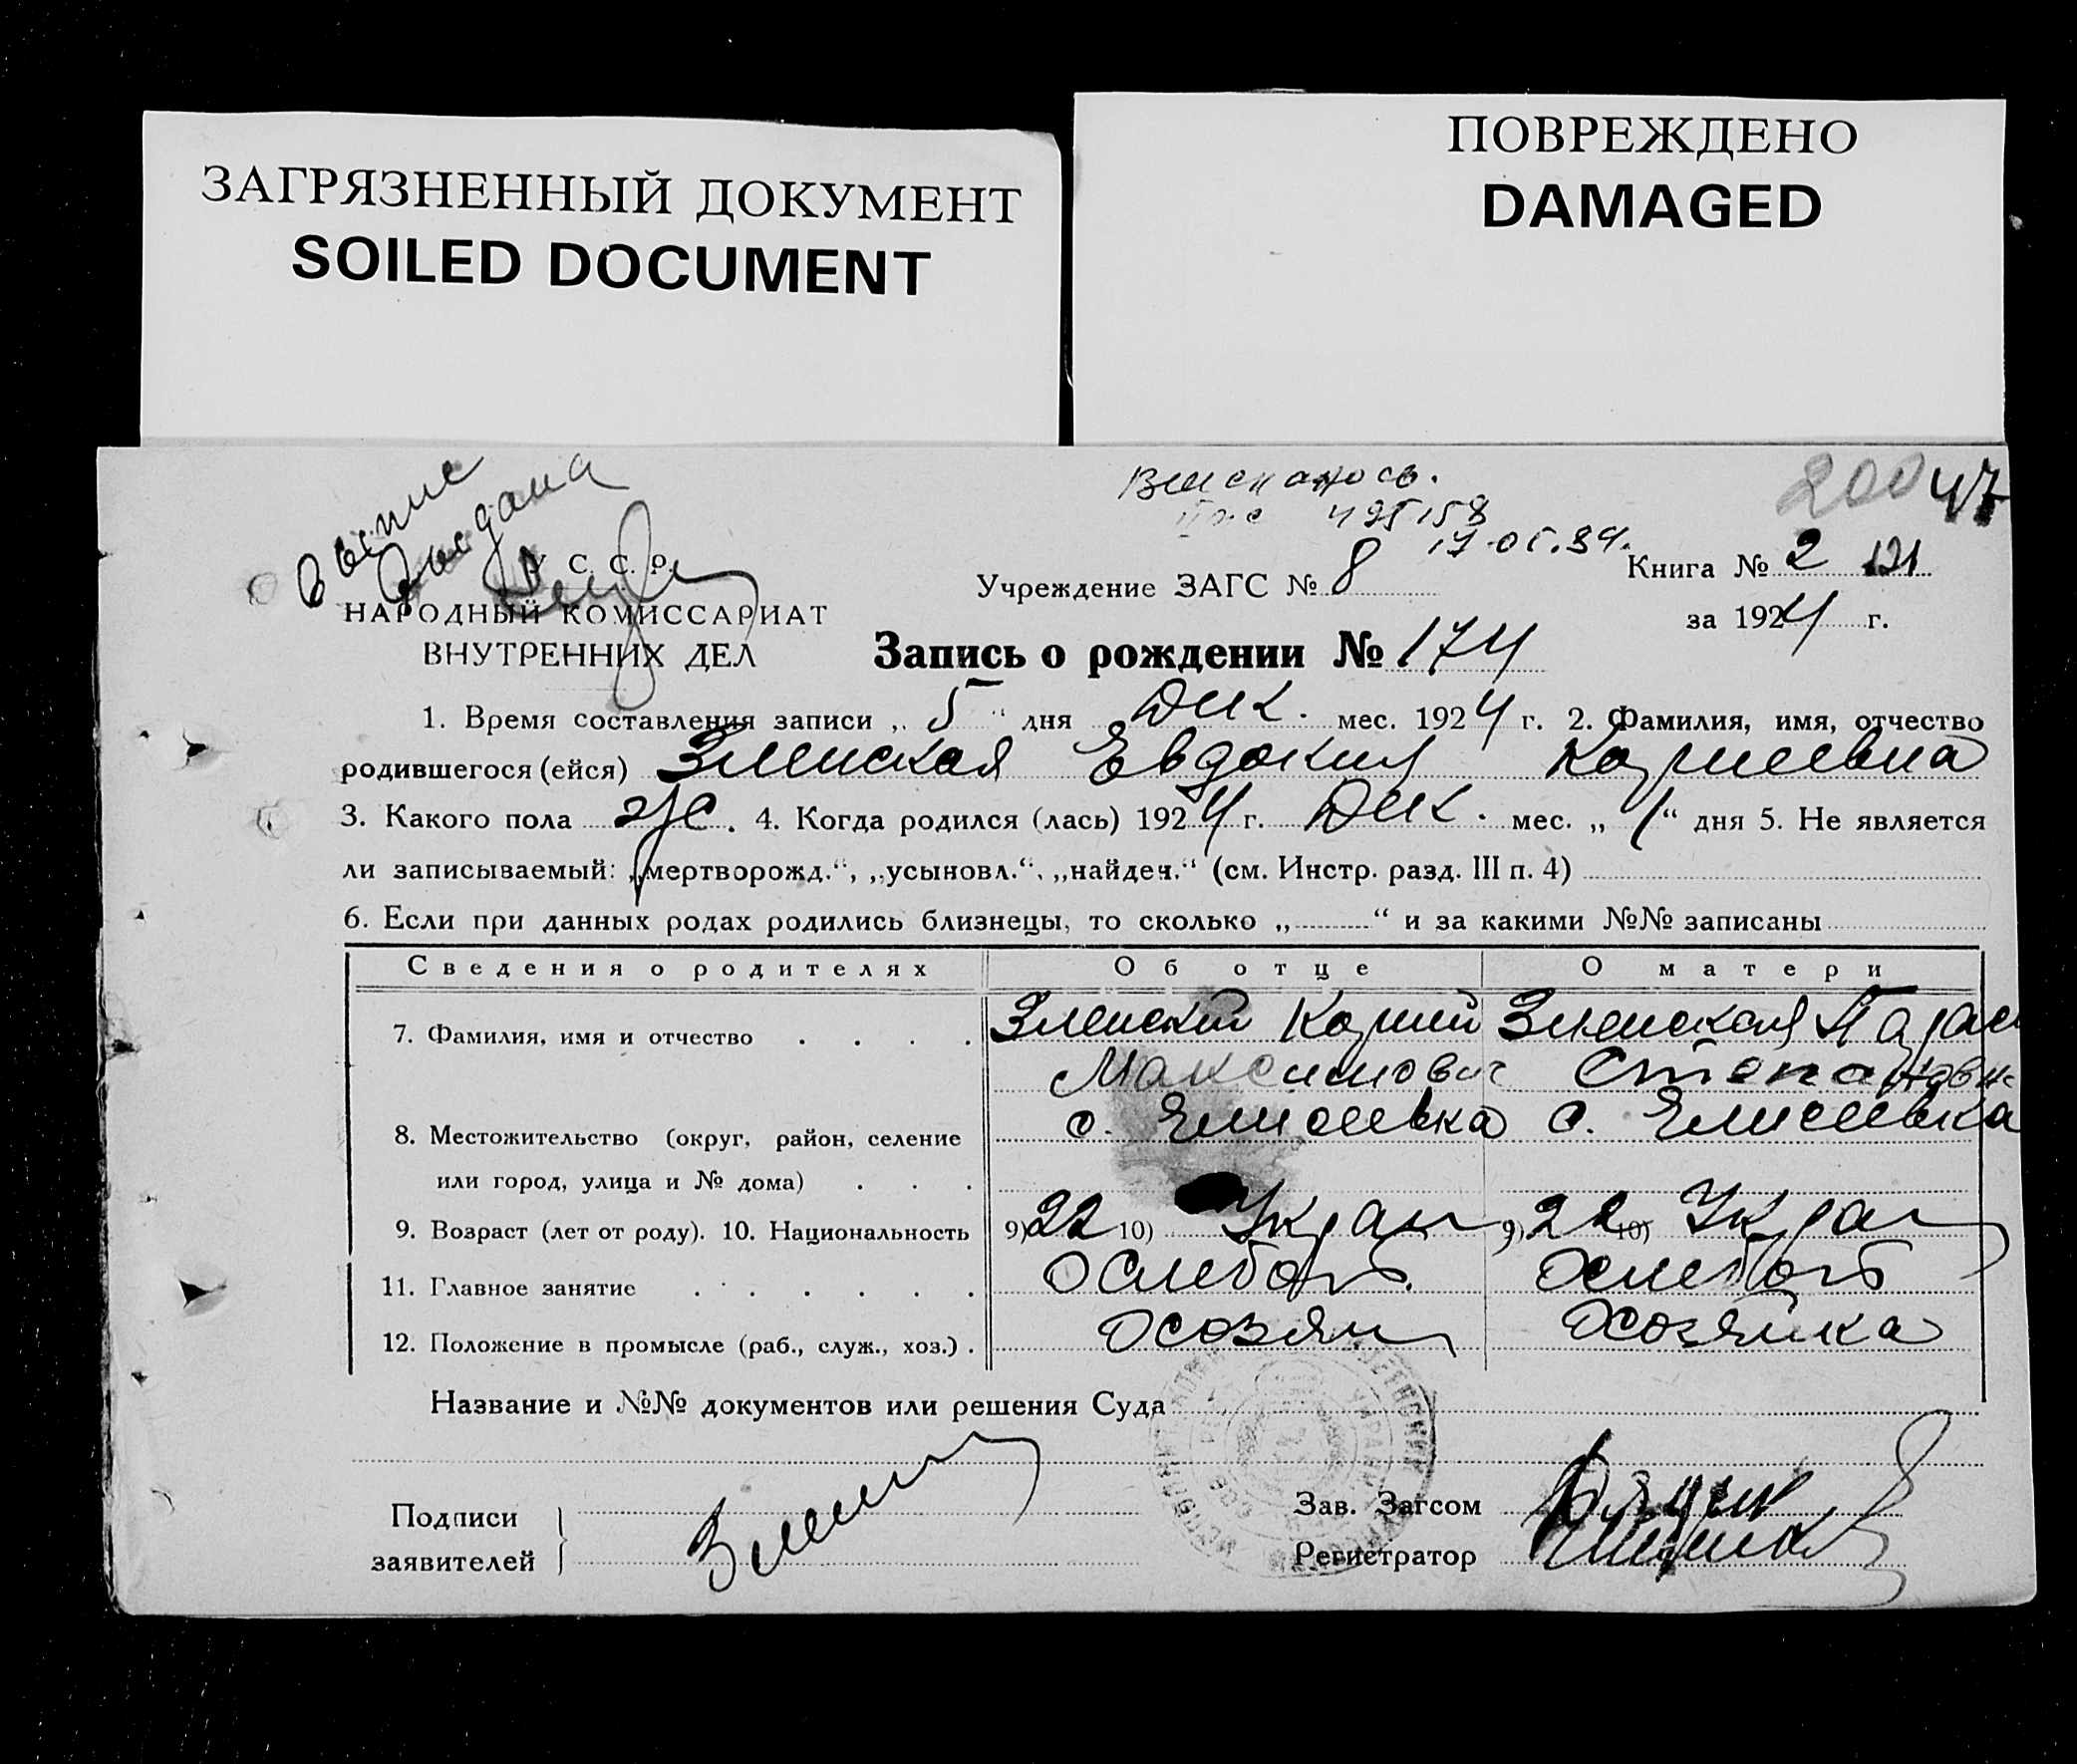 ЗАГРЯЗНЕННЫЙ ДОКУМЕНТ
SOILED DOCUMENT
ПОВРЕЖДЕНО
DAMAGED
200 47
425158
17.05.84.
У. С. С. Р.
НАРОДНЫЙ КОМИССАРИАТ
ВНУТРЕННИХ ДЕЛ
Учреждение ЗАГС № 8
Книга № 2 131
за 1924 г.
Запись о рождении № 174
1. Время составления записи „ 5 “ дня Дек. мес. 1924 г. 2. Фамилия, имя, отчество
родившегося (ейся) Зленская Евдокия Корнеевна
3. Какого пола ж. 4. Когда родился (лась) 1924 г. Дек. мес. „ 1 “ дня 5. Не является
ли записываемый: „мертворожд.“, „усыновл.“, „найден.“ (см. Инстр. разд. III п. 4)
6. Если при данных родах родились близнецы, то сколько „ “ и за какими №№ записаны
Сведения о родителях Об отце О матери
7. Фамилия, имя и отчество Зленский Корний Зленская Парас
Максимович Степановна
8. Местожительство (округ, район, селение с. Елисеевка с. Елисеевка
или город, улица и № дома)
9. Возраст (лет от роду). 10. Национальность 9) 22 10) Украин 9) 22 10) Украин
11. Главное занятие Хлебороб. Хлебороб
12. Положение в промысле (раб., служ., хоз.) Хозяин Хозяйка
Название и №№ документов или решения Суда
Подписи
заявителей
Зав. Загсом
Регистратор